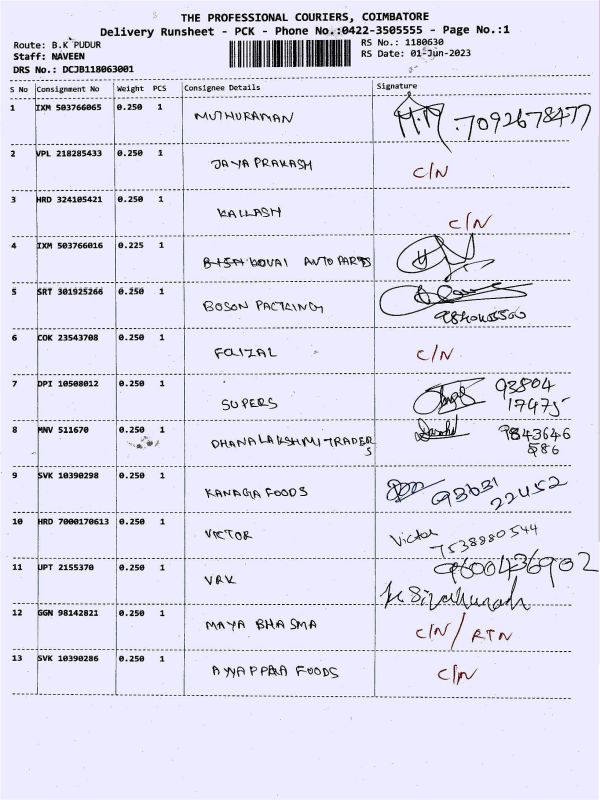 THE PROFESSIONAL COURIERS, COIMBATORE
Delivery Runsheet - PCK - Phone No.:0422-3505555 - Page No.:1
Route: B.K PUDUR
RS No.: 1180630
Staff: NAVEEN
RS Date: 01-Jun-2023
DRS No.: DCJB118063001
S No Consignment No Weight PCS Consignee Details Signature
1 IXM 503766065 0.250 1 MUTHURAMAN 7092678477
2 VPL 218285433 0.250 1 JAYA PRAKASH C/N
3 HRD 324105421 0.250 1 KAILASH C/N
4 IXM 503766016 0.225 1 KOVAI AUTO PARTS
5 SRT 301925266 0.250 1 BOSON PACKING
6 COK 23543708 0.250 1 FAIZAL C/N
7 DPI 10508012 0.250 1 SUPERS 93804
17475
8 MNV 511670 0.250 1 DHANALAKSHMI TRADERS 9843646
586
9 SVK 10390298 0.250 1 KANAGA FOODS 93631 22452
10 HRD 7000170613 0.250 1 VICTOR Victor
7538880544
11 UPT 2155370 0.250 1 VRK 9600436902
12 GGN 98142821 0.250 1 MAYA BHASMA C/N / RTN
13 SVK 10390286 0.250 1 AYYAPPAA FOODS C/N